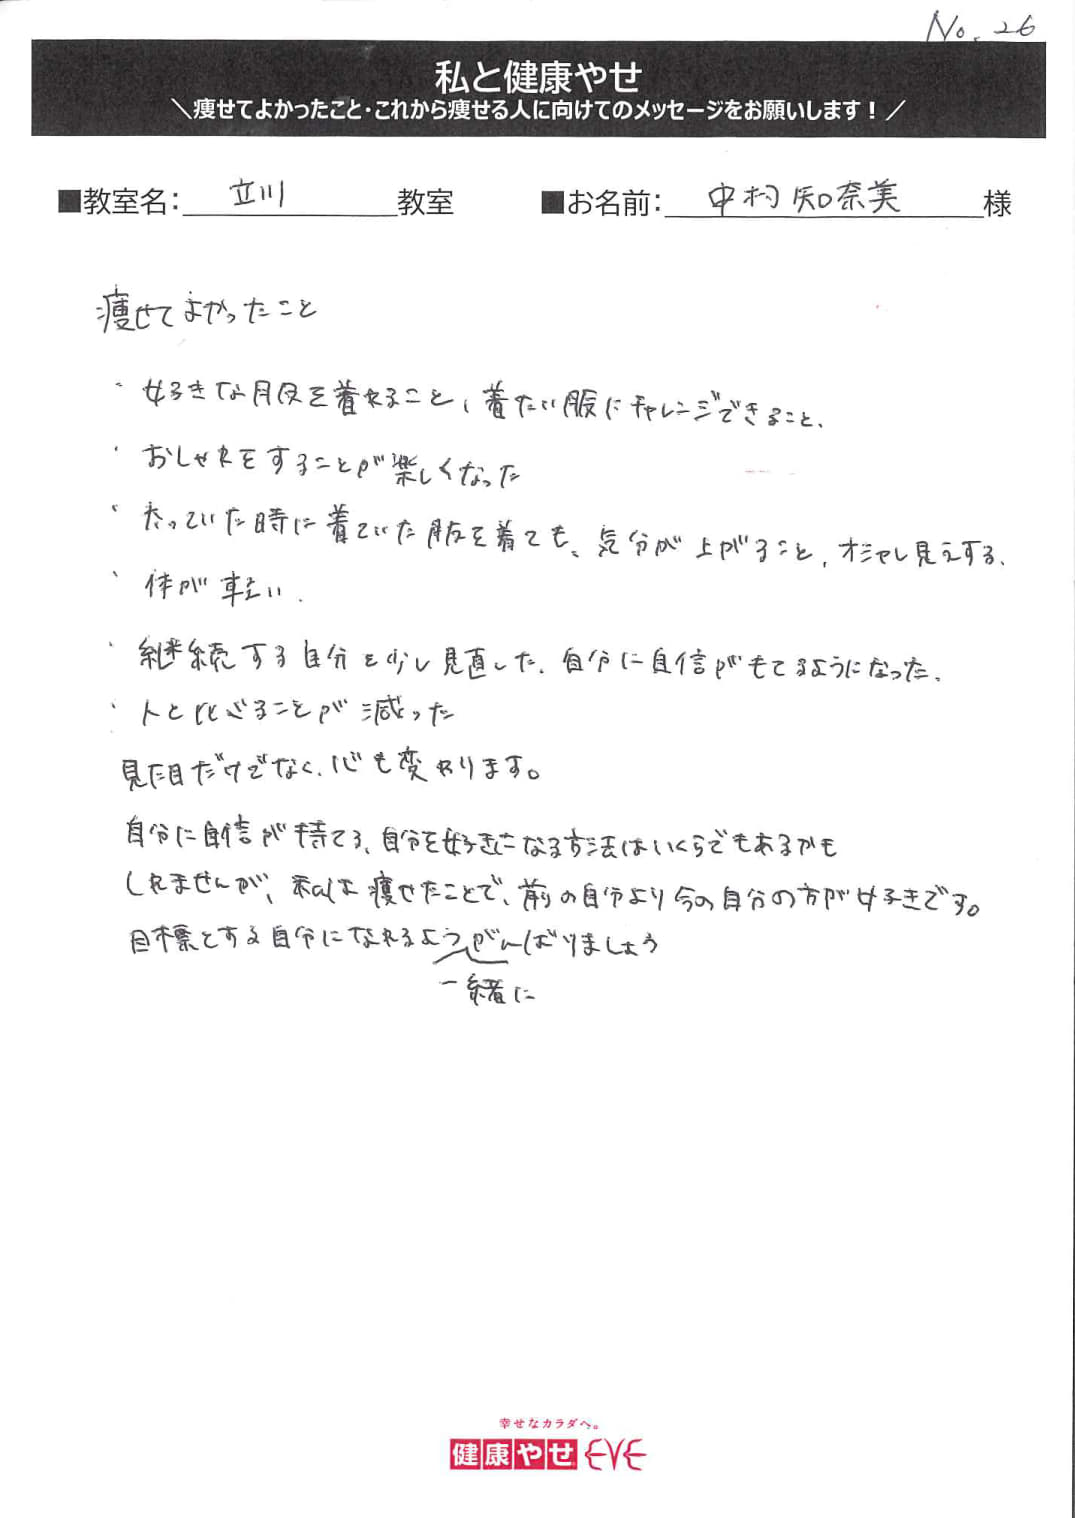 No. 26
私と健康やせ
＼痩せてよかったこと・これから痩せる人に向けてのメッセージをお願いします！／
■教室名： 立川 教室 ■お名前： 中村 知奈美 様
痩せてよかったこと
・好きな服を着れること、着たい服にチャレンジできること、
・おしゃれをすることが楽しくなった
・太っていた時に着ていた服を着ても、気分が上がること、オシャレ見えする、
・体が軽い、
・継続する自分を少し見直した、自分に自信がもてるようになった、
・人と比べることが減った
見た目だけでなく、心も変わります。
自分に自信が持てる、自分を好きになる方法はいくらでもあるかも
しれませんが、私は痩せたことで、前の自分より今の自分の方が好きです。
目標とする自分になれるようがんばりましょう
一緒に
幸せなカラダへ。
健康やせEVE